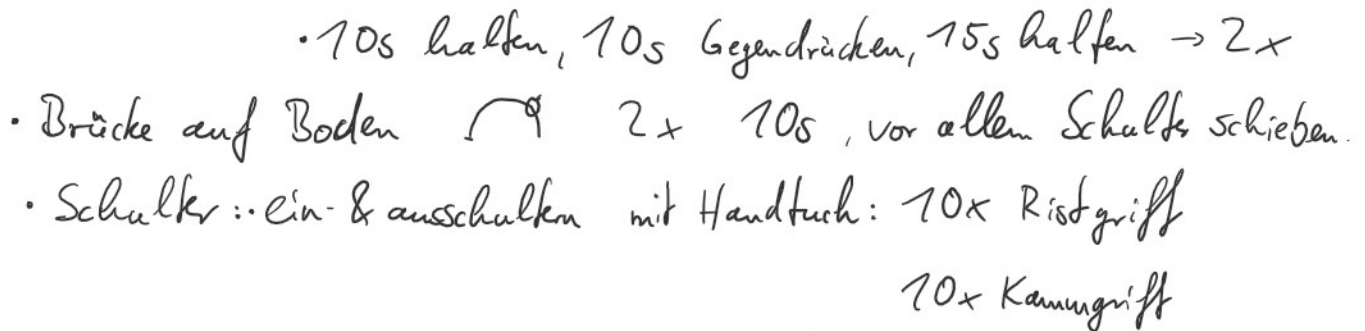 · 10s halten, 10s Gegendrücken, 15s halten → 2x
· Brücke auf Boden 2x 10s, vor allem Schulter schieben.
· Schulter: · ein- & ausschultern mit Handtuch: 10x Ristgriff
10x Kammgriff